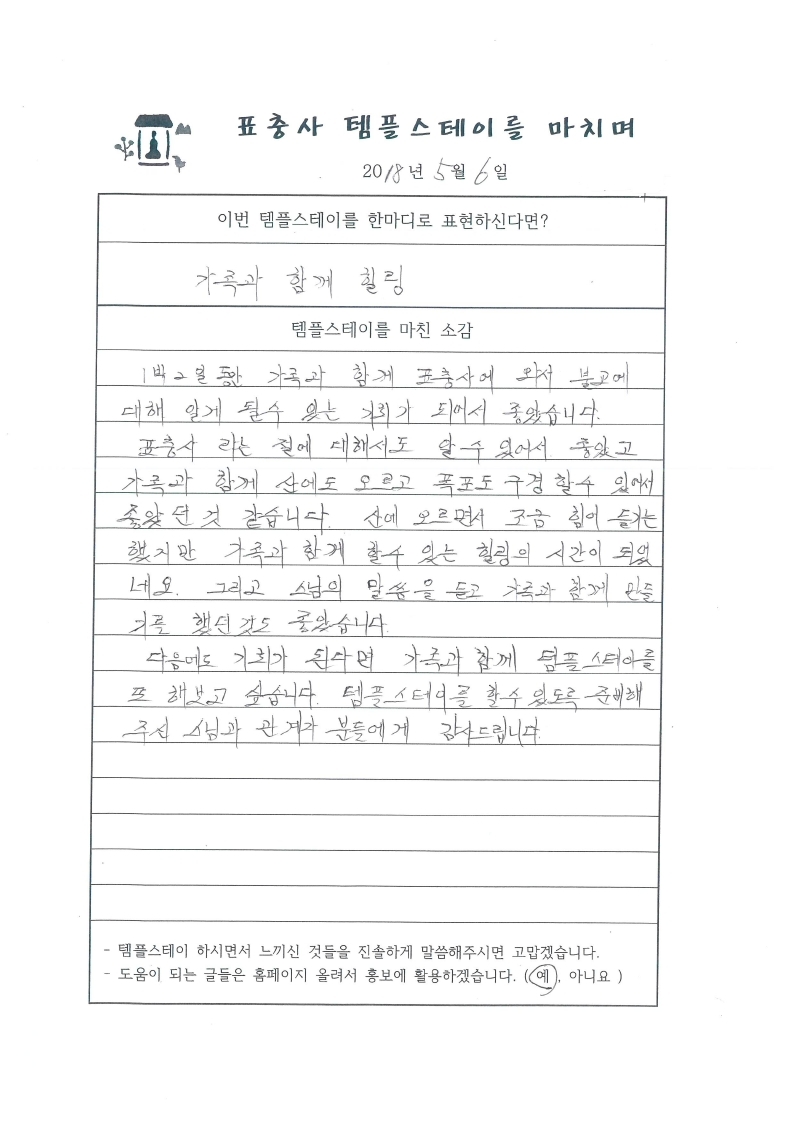 표충사 템플스테이를 마치며
2018년 5월 6일
이번 템플스테이를 한마디로 표현하신다면?
가족과 함께 힐링
템플스테이를 마친 소감
1박2일 동안 가족과 함께 표충사에 와서 불교에
대해 알게 될수 있는 기회가 되어서 좋았습니다.
표충사 라는 절에 대해서도 알 수 있어서 좋았고
가족과 함께 산에도 오르고 폭포도 구경 할수 있어서
좋았던 것 같습니다. 산에 오르면서 조금 힘이 들기는
했지만 가족과 함께 할수 있는 힐링의 시간이 되었
네요. 그리고 스님의 말씀을 듣고 가족과 함께 만들
기를 했던것도 좋았습니다.
다음에도 기회가 된다면 가족과 함께 템플스테이를
또 해보고 싶습니다. 템플스테이를 할수 있도록 준비해
주신 스님과 관계자 분들에게 감사드립니다.
- 템플스테이 하시면서 느끼신 것들을 진솔하게 말씀해주시면 고맙겠습니다.
- 도움이 되는 글들은 홈페이지 올려서 홍보에 활용하겠습니다. (예, 아니요 )